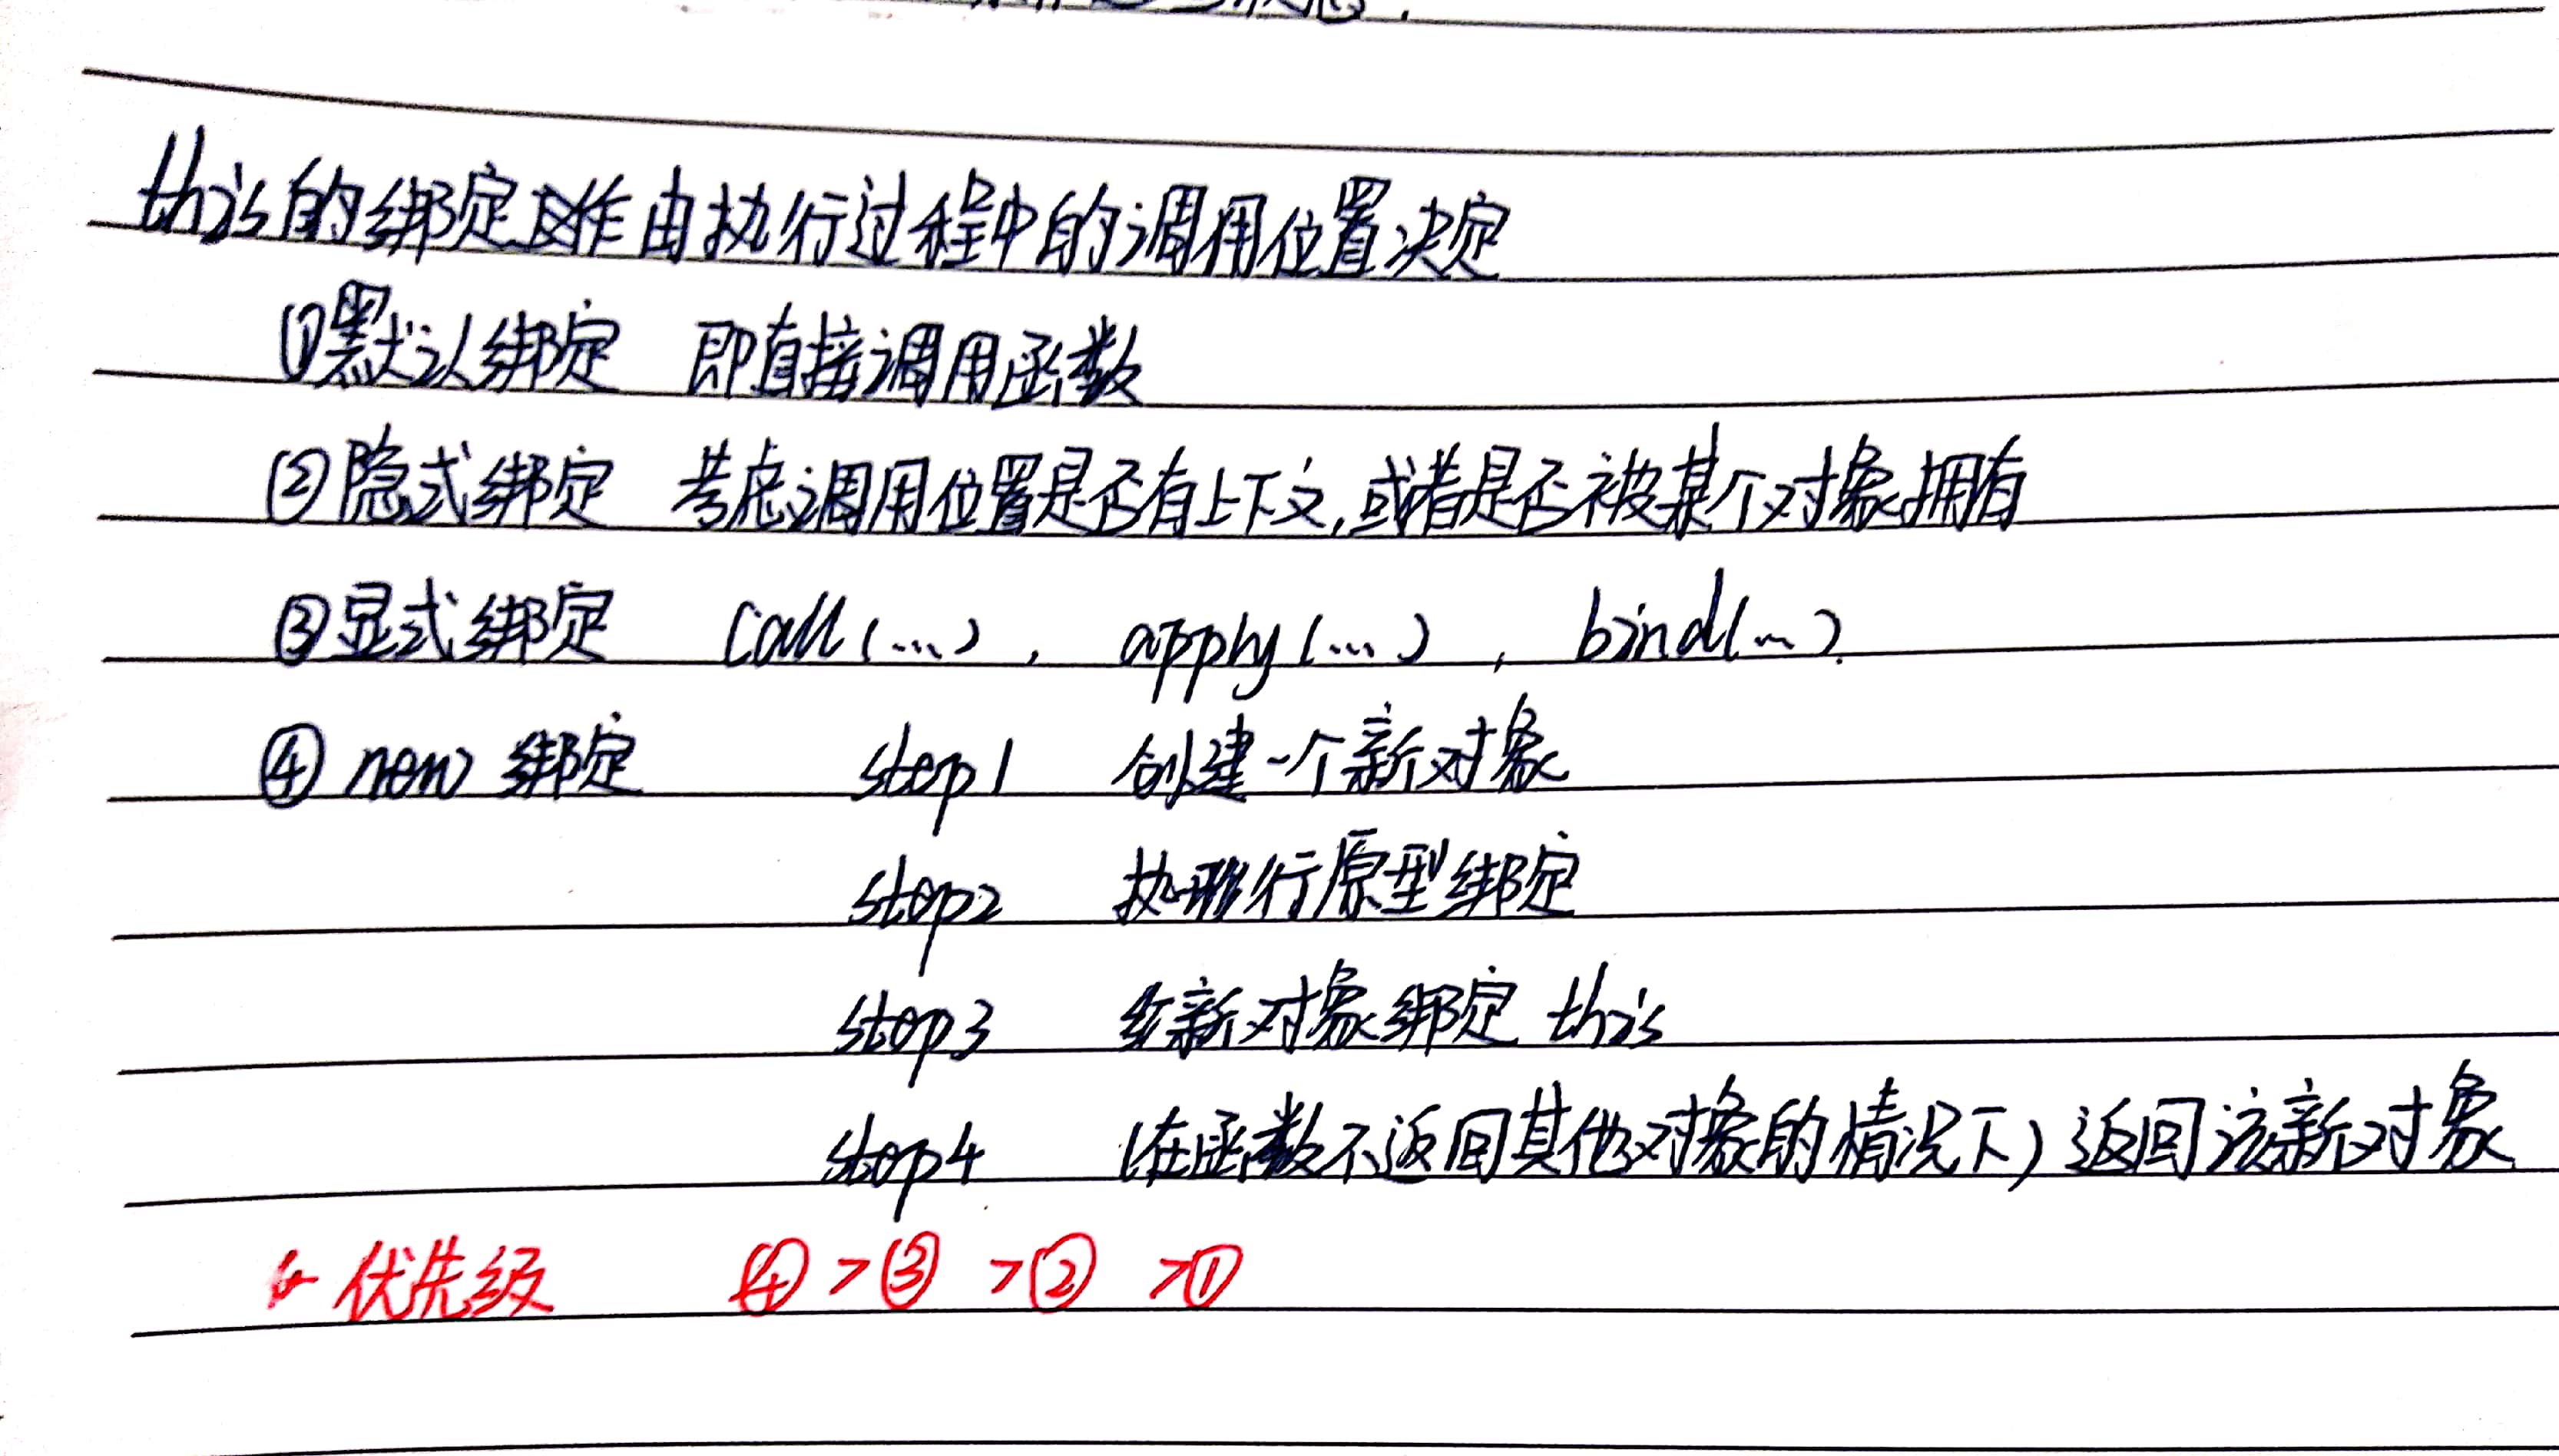 this的绑定操作由执行过程中的调用位置决定
①默认绑定 即直接调用函数
②隐式绑定 考虑调用位置是否有上下文,或者是否被某个对象拥有
③显式绑定 call(...), apply(...), bind(...).
④new 绑定 step1 创建一个新对象
step2 执行原型绑定
step3 给新对象绑定 this
step4 (在函数不返回其他对象的情况下)返回该新对象
优先级 ④>③>②>①